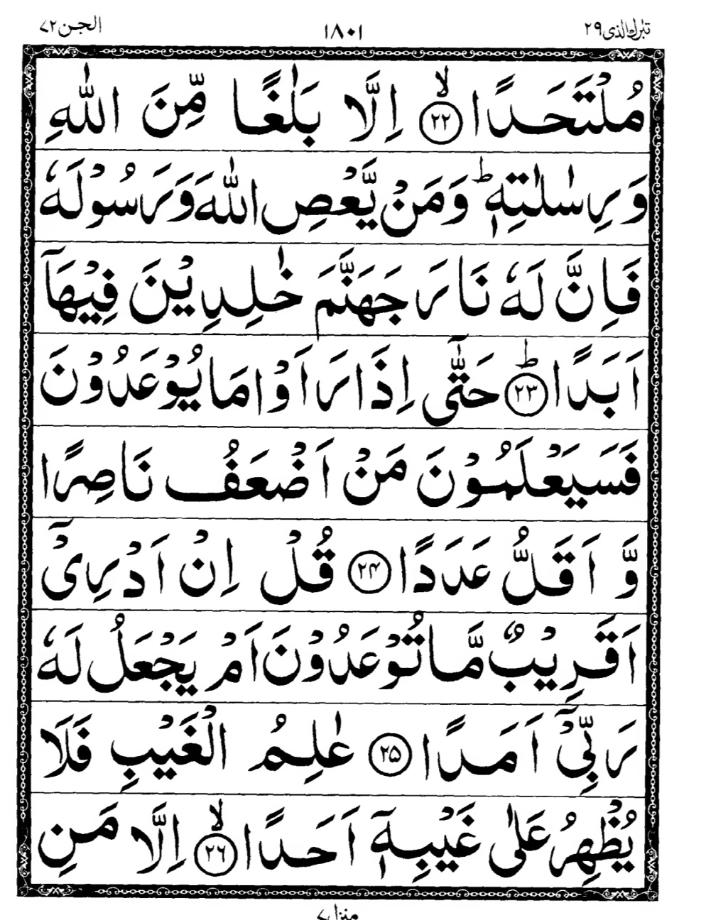 تبٰرك الذی ۲۹ ۱۸۰۱ الجن ۷۲
مُلْتَحَدًا ۙ‏﴿۲۲﴾ اِلَّا بَلٰغًا مِّنَ اللّٰهِ
وَرِسٰلٰتِهٖ ؕ وَمَنْ يَّعْصِ اللّٰهَ وَرَسُوْلَهٗ
فَاِنَّ لَهٗ نَارَ جَهَنَّمَ خٰلِدِيْنَ فِيْهَاۤ
اَبَدًا ؕ‏﴿۲۳﴾ حَتّٰۤى اِذَا رَاَوْا مَا يُوْعَدُوْنَ
فَسَيَعْلَمُوْنَ مَنْ اَضْعَفُ نَاصِرًا
وَّ اَقَلُّ عَدَدًا ﴿۲۴﴾ قُلْ اِنْ اَدْرِىْۤ
اَقَرِيْبٌ مَّا تُوْعَدُوْنَ اَمْ يَجْعَلُ لَهٗ
رَبِّىْۤ اَمَدًا ﴿۲۵﴾ عٰلِمُ الْغَيْبِ فَلَا
يُظْهِرُ عَلٰى غَيْبِهٖۤ اَحَدًا ۙ‏﴿۲۶﴾ اِلَّا مَنِ
منزل ۷